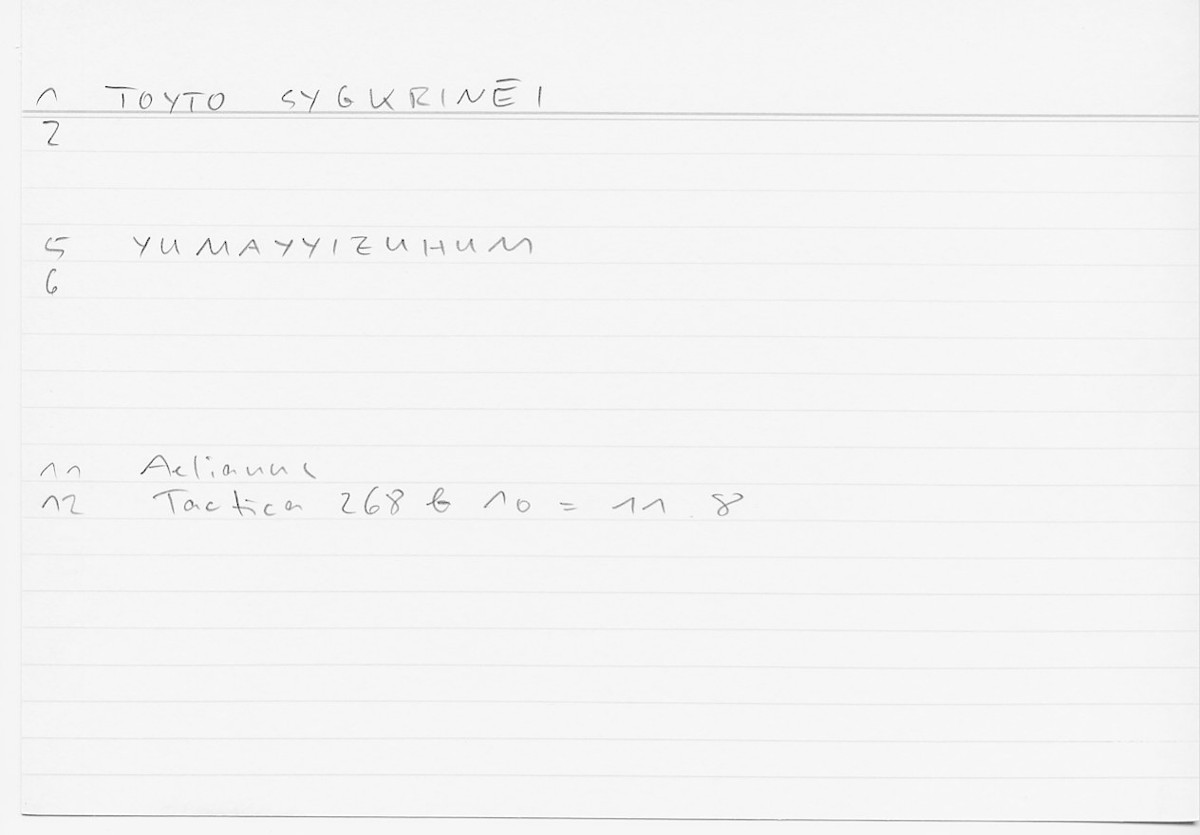 1 TOYTO SYGKRINĒI
2
5 YUMAYYIZUHUM
6
11 Aelianus
12 Tactica 268 b 10 = 11 8